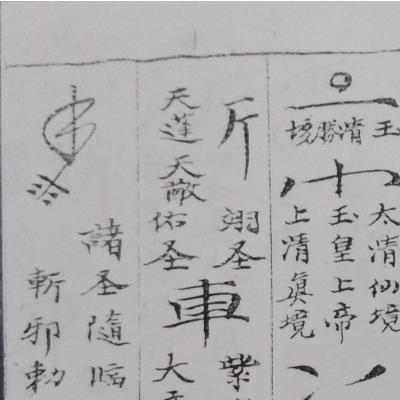 玉清勝境
太清仙境
玉皇上帝
上清眞境
斤
翊圣
天蓬天猷佑圣
車
紫
大
諸圣隨临
斬邪勅